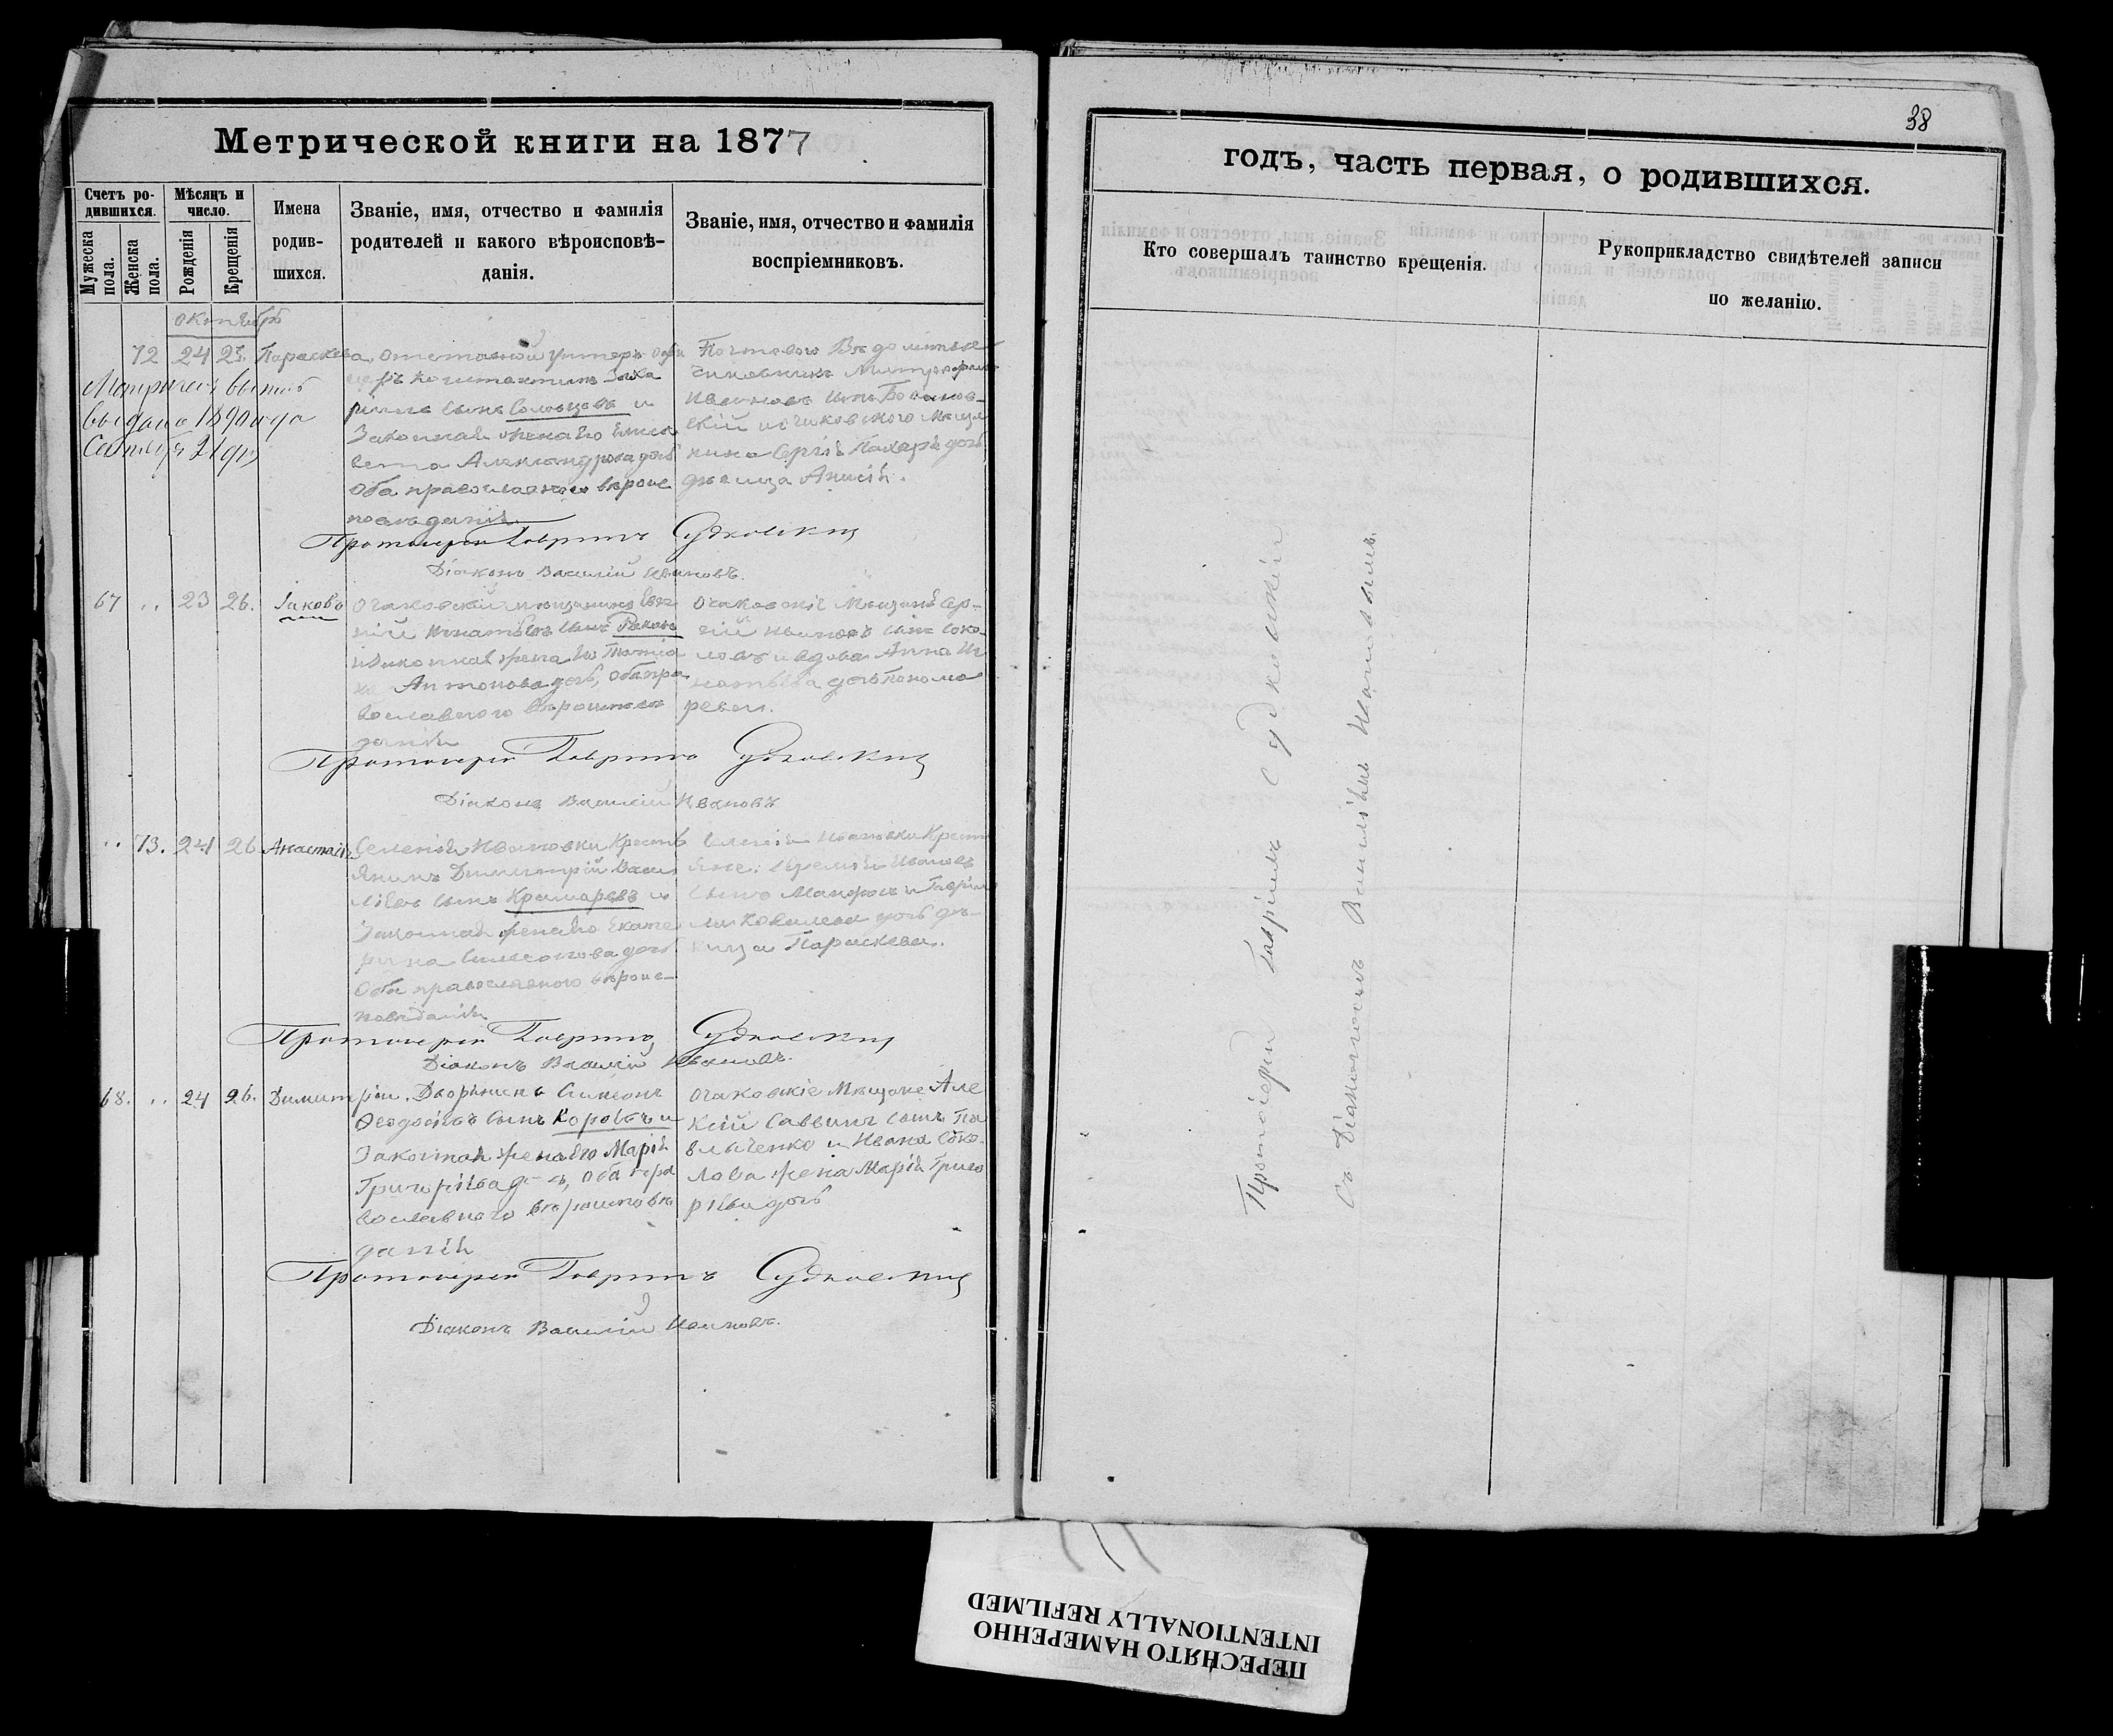 Метрической книги на 1877
Счетъ ро-
дившихся.
Мужеска
пола.
Женска
пола.
Мѣсяцъ и
число.
Рожденія
Крещенія
Имена
родив-
шихся.
Званіе, имя, отчество и фамилія
родителей и какого вѣроисповѣ-
данія.
Званіе, имя, отчество и фамилія
воспріемниковъ.
октябрь
72 24 25. Параскева
Отставной унтеръ офи
церъ Константинъ Заха
сынъ и
Законная жена его Елиса
вета Александрова дочь
Оба православнаго вѣроис
повѣданія
Почтоваго Вѣдомства
чиновникъ Митрофанъ
Ивановъ сынъ
дочь
дѣвица Анисія.
выдана 1890 года
Сентября 21 дня
Протоіерей Гавріилъ Судковскій
Діаконъ Василій Ивановъ.
67 .. 23 26. Іаковъ
Очаковскій мѣщанинъ
Игнатьевъ сынъ Раковъ
и законная жена его Татіа
на Антонова дочь, Оба пра
вославнаго вѣроисповѣ
данія
Очаковскіе Мѣщане Сер-
гій Ивановъ сынъ Соко-
ловъ и вдова Анна Иг
натьева дочь Понома
рева.
Протоіерей Гавріилъ Судковскій
Діаконъ Василій Ивановъ
.. 73. 24 26 Анастасія
Селенія Ивановки Кресть
янинъ Димитрій Васи
ліевъ сынъ Крамаревъ и
Законная жена его Екате
рина Симеонова дочь
Оба православнаго вѣроис-
повѣданія
Селенія Ивановки Кресть
яне: Іеремія Ивановъ
сынъ и Гаврі
ила дочь дѣ-
вица Параскева.
Протоіерей Гавріилъ Судковскій
Діаконъ Василій Ивановъ.
68. .. 24 26. Димитрій.
Дворянинъ Симеонъ
Ѳеодосіевъ сынъ Коровъ и
Законная жена его Марія
Григоріева д-ь, Оба пра
вославнаго вѣроисповѣ
данія
Очаковскіе Мѣщане Але
ксій Саввинъ сынъ Па
вличенко и Ивана Соко-
лова жена Марія Григо
ріева дочь
Протоіерей Гавріилъ Судковскій
Діаконъ Василій Ивановъ.
38
годъ, часть первая, о родившихся.
Кто совершалъ таинство крещенія.
Рукоприкладство свидѣтелей записи
по желанію.
Протоіерей Гавріилъ Судковскій
Съ Діакономъ Василіемъ Ивановымъ.
ПЕРЕСНЯТО НАМЕРЕННО
INTENTIONALLY REFILMED